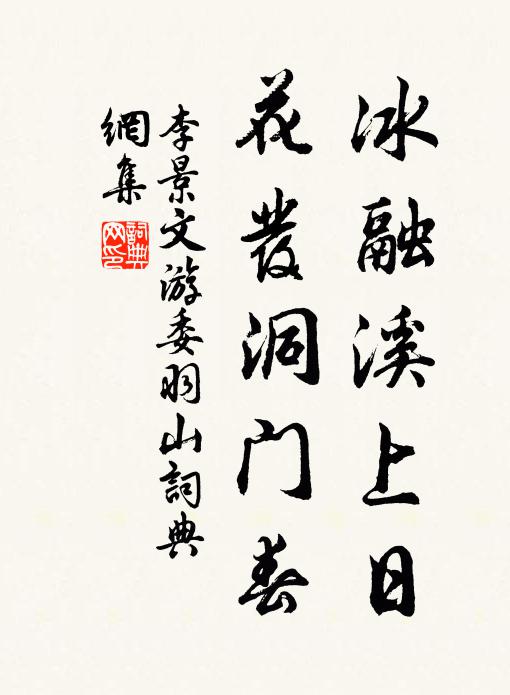 冰融溪上日
花發洞门春
李景文游委羽山詞典
網集
詞典
网印